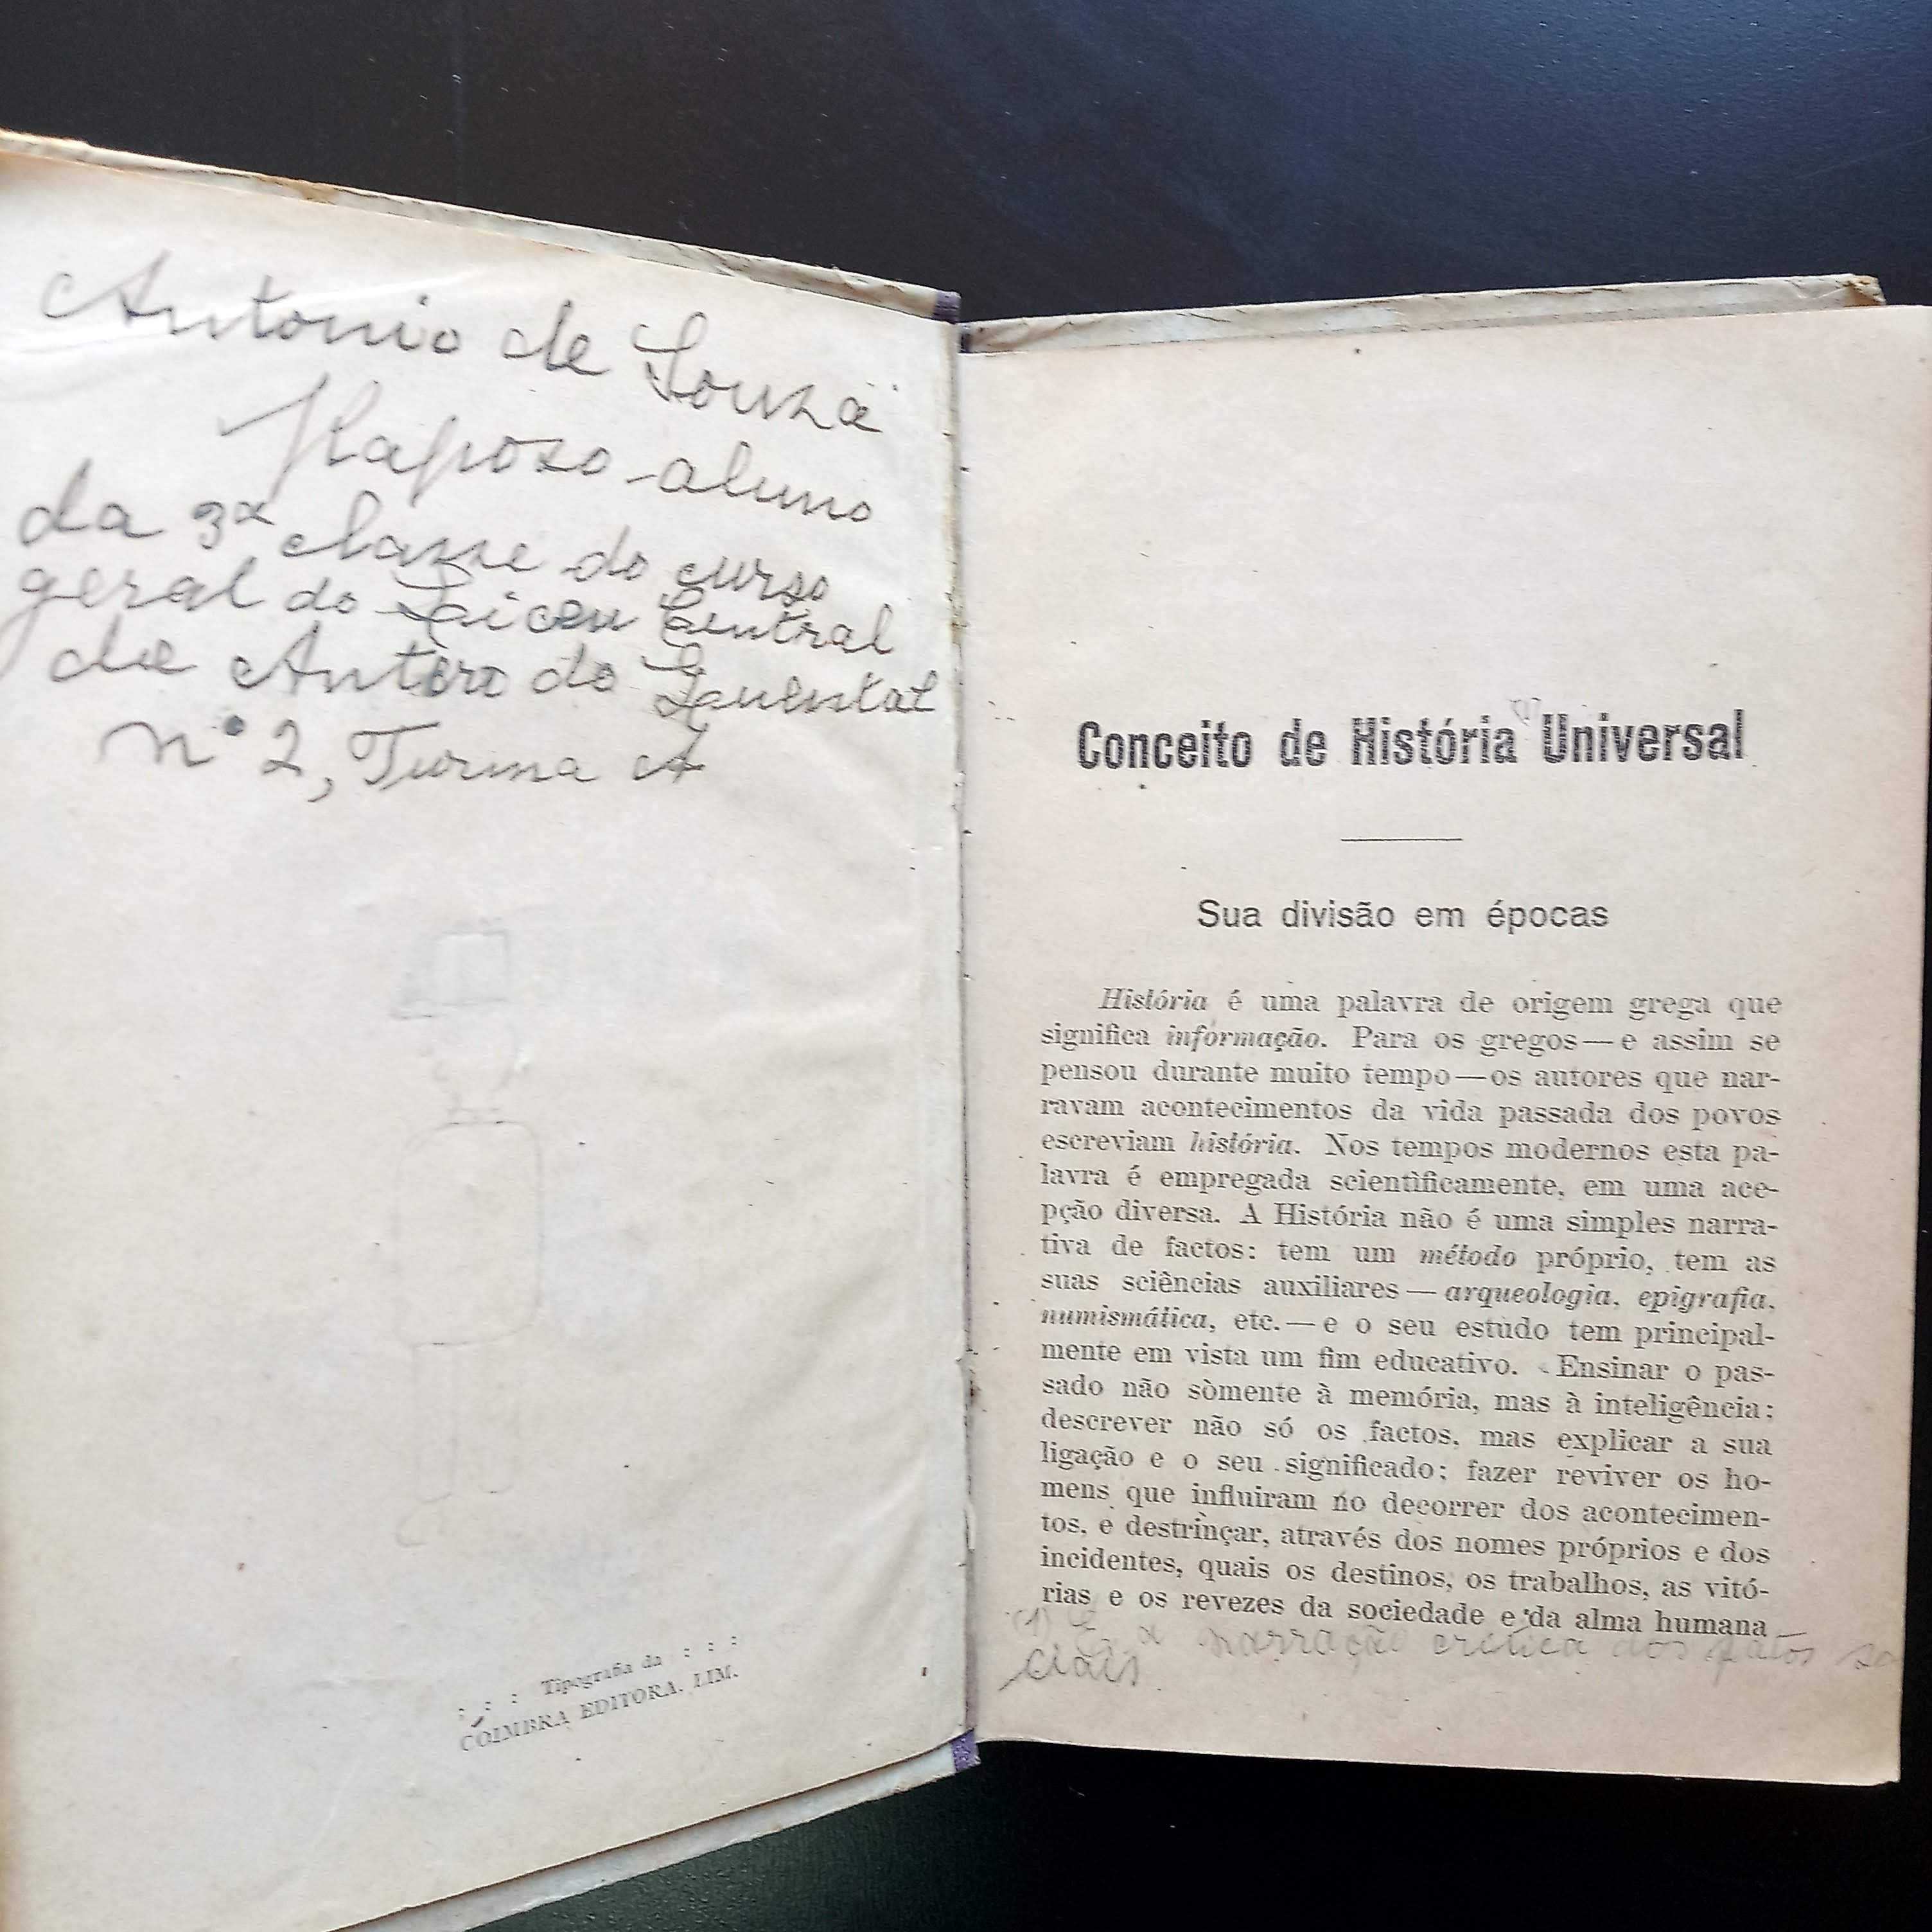 Antonio de Souza
Raposo aluno
da 3ª classe do curso
geral do Liceu Central
de Antero do Quental
nº 2, Turma A
: : : Tipografia da : : :
COIMBRA EDITORA, LIM.
Conceito de História Universal
(1)
Sua divisão em épocas
História é uma palavra de origem grega que
significa informação. Para os gregos — e assim se
pensou durante muito tempo — os autores que nar-
ravam acontecimentos da vida passada dos povos
escreviam história. Nos tempos modernos esta pa-
lavra é empregada scientìficamente, em uma ace-
pção diversa. A História não é uma simples narra-
tiva de factos: tem um método próprio, tem as
suas sciências auxiliares — arqueologia, epigrafia,
numismática, etc. — e o seu estudo tem principal-
mente em vista um fim educativo. Ensinar o pas-
sado não sòmente à memória, mas à inteligência;
descrever não só os factos, mas explicar a sua
ligação e o seu significado; fazer reviver os ho-
mens que influiram no decorrer dos acontecimen-
tos, e destrinçar, através dos nomes próprios e dos
incidentes, quais os destinos, os trabalhos, as vitó-
rias e os revezes da sociedade e da alma humana
(1) É a narração crítica dos fatos so
ciais